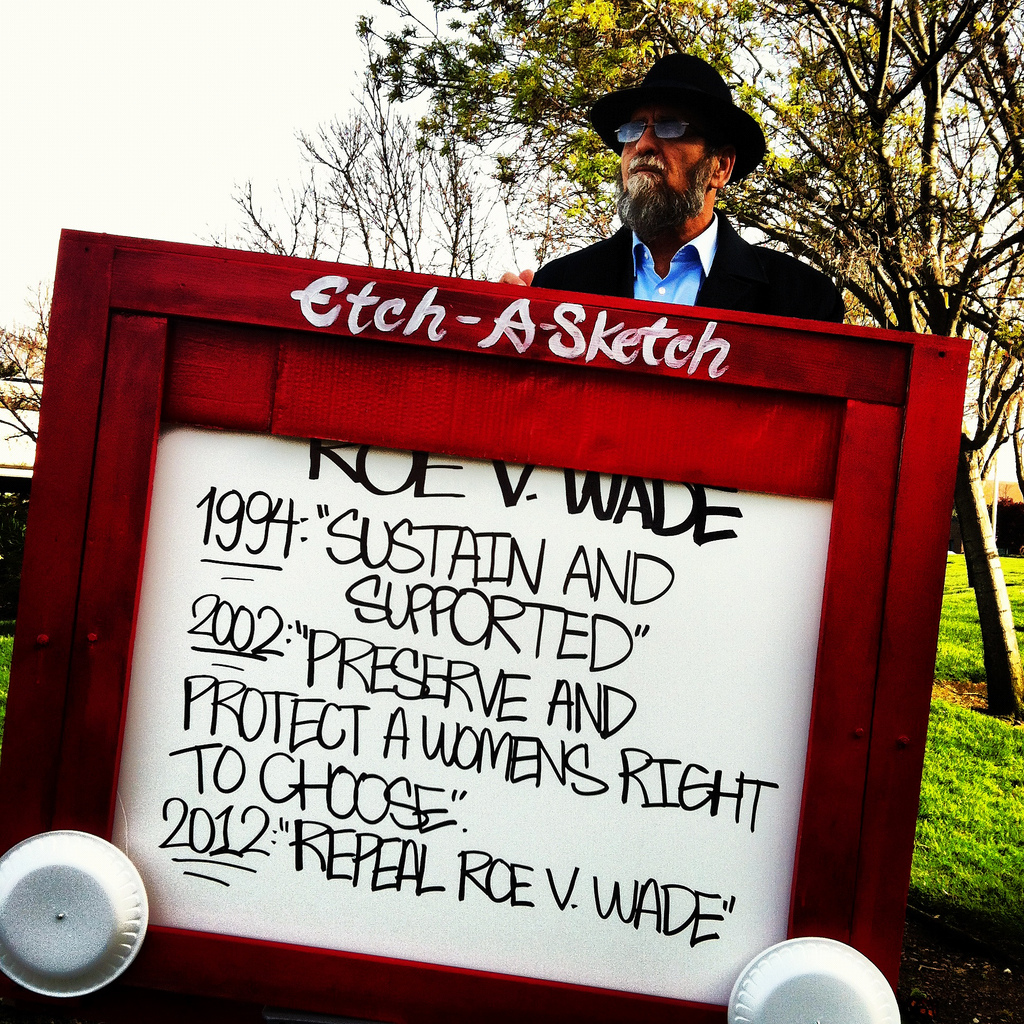 Etch-A-Sketch
ROE V. WADE
1994: "SUSTAIN AND
SUPPORTED"
2002: "PRESERVE AND
PROTECT A WOMENS RIGHT
TO CHOOSE".
2012: "REPEAL ROE V. WADE"